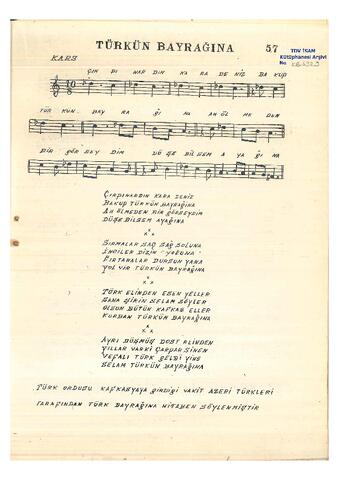 TÜRKÜN BAYRAĞINA
57
TDV İSAM
Kütüphanesi Arşivi
No
KARS
ÇIR PI NAR DIN KA RA DE NİZ BA KUP
TÜR KÜN BAY RA ĞI NA AH ÖL ME DEN
BİR GÖR SEY DİM DÜ ŞE BİLSEM A YA ĞI NA
ÇIRPINARDIN KARA DENİZ
BAKUP TÜRKÜN BAYRAĞINA
AH ÖLMEDEN BİR GÖRSEYDİM
DÜŞE BİLSEM AYAĞINA
x x x
SIRMALAR SAÇ SAĞ SOLUNA
İNCİLER DİZİN YOLUNA
FIRTANALAR DURSUN YANA
YOL VİR TÜRKÜN BAYRAĞINA
x x x
TÜRK ELİNDEN ESEN YELLER
SANA ŞİRİN SELAM SÖYLER
OLSUN BÜTÜN KAFKAS ELLER
KURBAN TÜRKÜN BAYRAĞINA
x x x
AYRI DÜŞMÜŞ DOST ELİNDEN
YILLAR VARKİ ÇARPAR SİNEM
VEFALI TÜRK GELDİ YİNE
SELAM TÜRKÜN BAYRAĞINA
TÜRK ORDUSU KAFKASYAYA GİRDİĞİ VAKİT AZERİ TÜRKLERİ
TARAFINDAN TÜRK BAYRAĞINA HİTABEN SÖYLENMİŞTİR